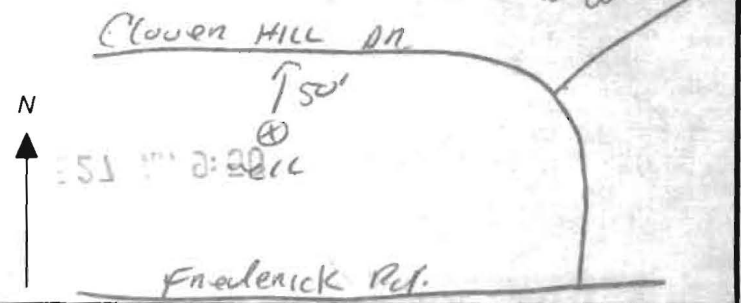 Clover HILL DR.
50'
N
Frederick Rd.